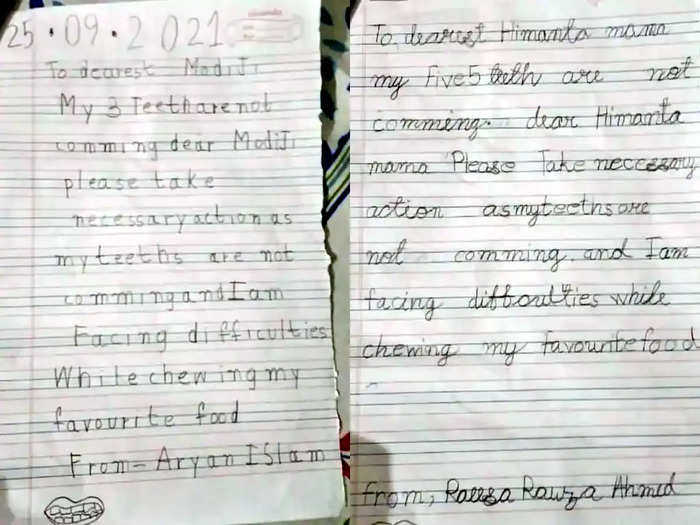 25.09.2021
To dearest ModiJi
My 3 Teeth are not
comming dear ModiJi
please take
necessary action as
my teeths are not
comming and I am
Facing difficulties
While chewing my
favourite food
From - Aryan ISlam
To, dearest Himanta mama
my five5 teeth are not
comming. dear Himanta
mama Please Take neccssary
action as my teeths are
not comming. and I am
facing difficulties while
chewing my favourite food
from, Raeesa Rawza Ahmed